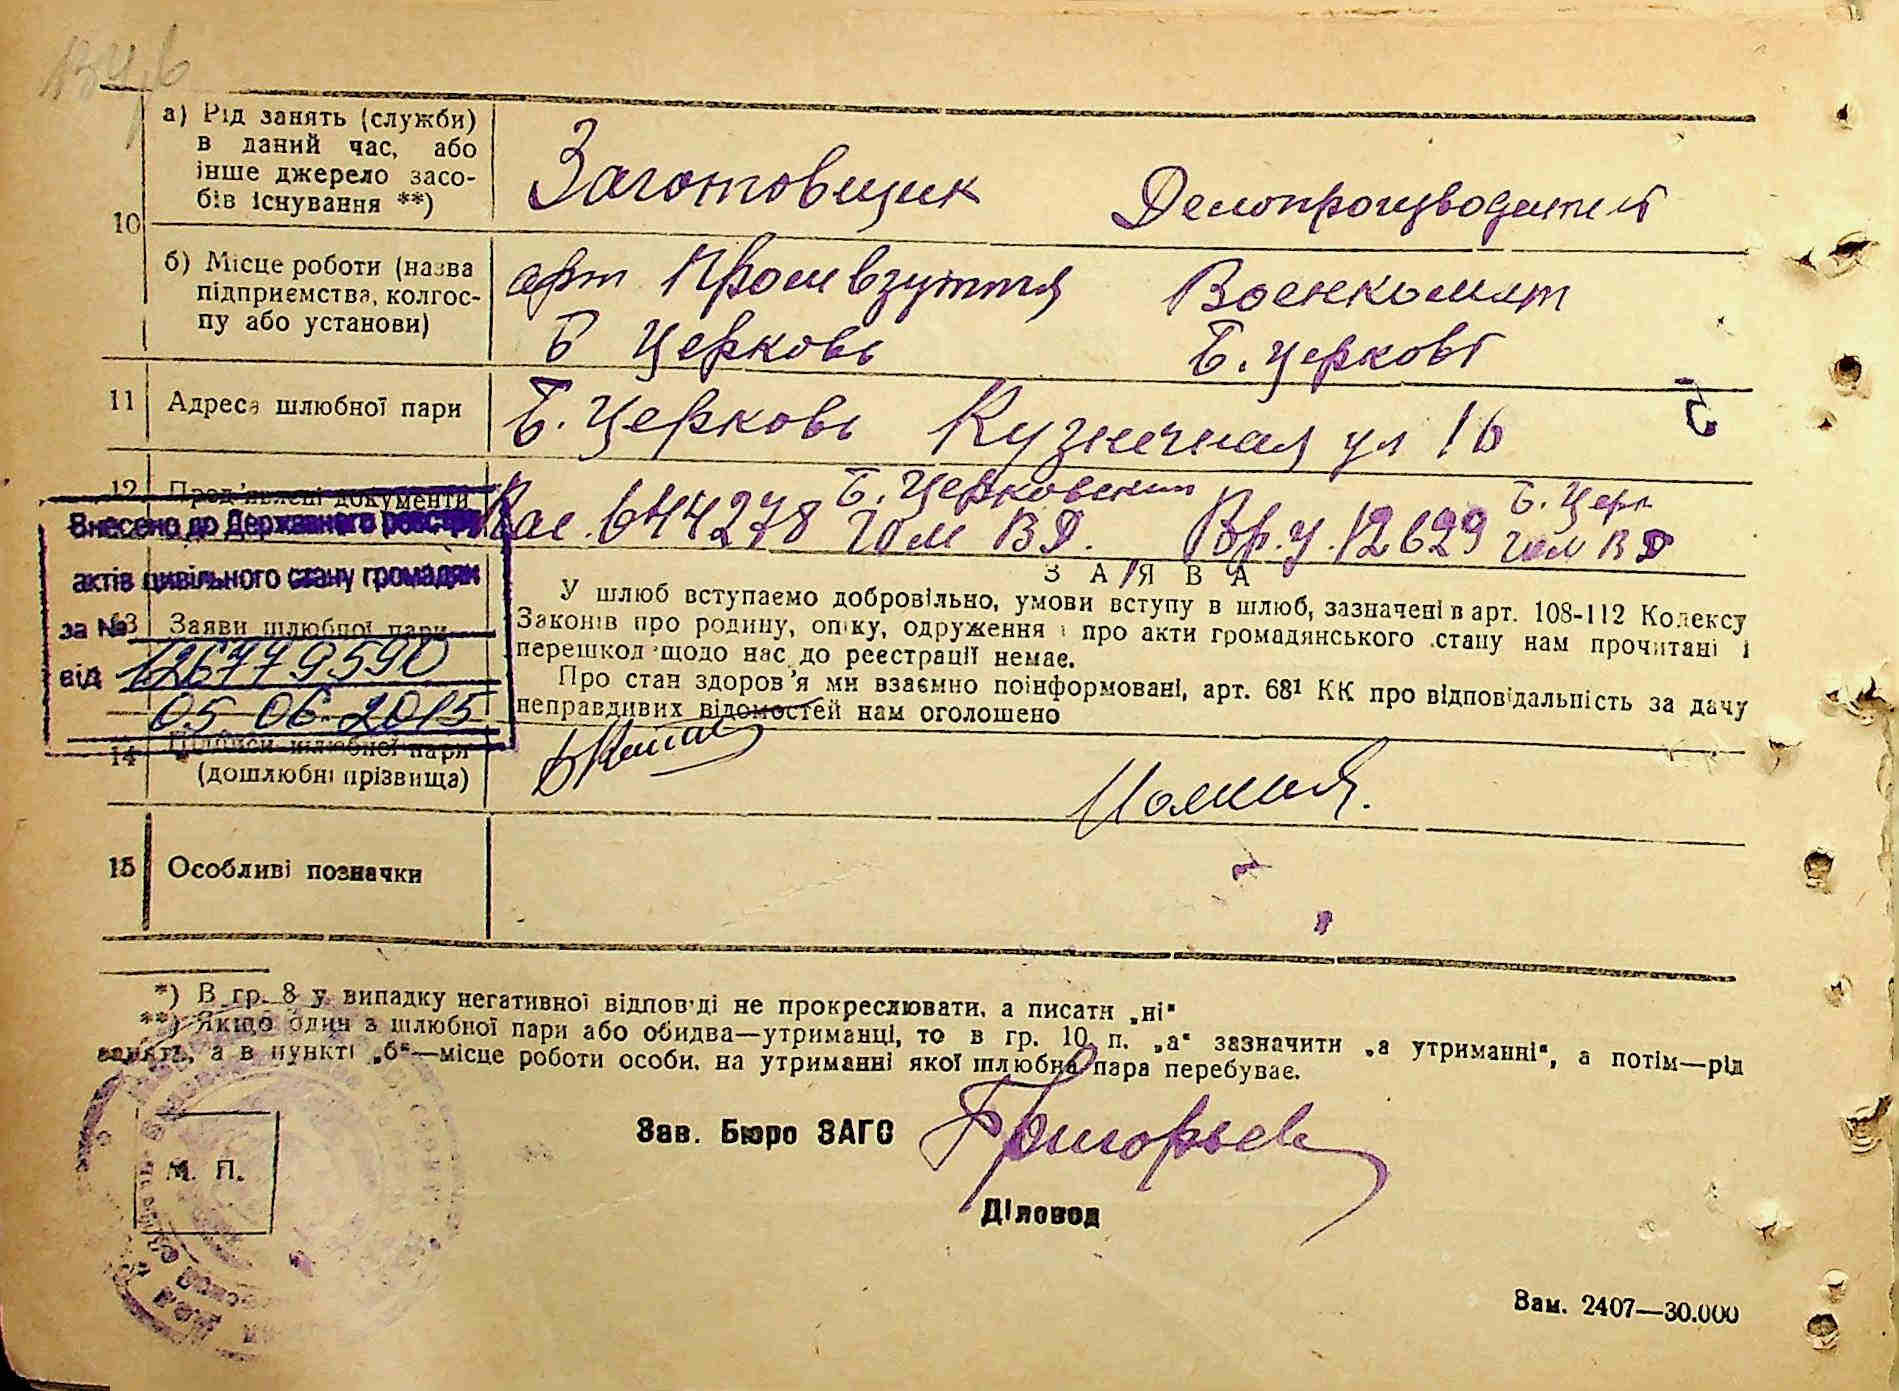 а) Рід занять (служби)
в даний час, або
інше джерело засо-
бів існування **)
Заготовщик Делопроизводитель
10
б) Місце роботи (назва
підприємства, колгос-
пу або установи)
арт Промвзуття Военкомат
Б Церковь Б. Церковь
11 Адреса шлюбної пари
Б. Церковь Кузнечная ул 16
12 Пред'явлені документи
Б. Церковским Б. Церк
Пас. 644278 ГОМ ВД. Вр. у. 12629 гом ВД
Внесено до Державного реєстру
актів цивільного стану громадян
за № 126779590
від 05 06 2015
13 Заяви шлюбної пари
ЗАЯВА
У шлюб вступаємо добровільно, умови вступу в шлюб, зазначені в арт. 108-112 Кодексу
Законів про родину, опіку, одруження і про акти громадянського стану нам прочитані і
перешкод щодо нас до реєстрації немає.
Про стан здоров'я ми взаємно поінформовані, арт. 68¹ КК про відповідальність за дачу
неправдивих відомостей нам оголошено
14 Підписи шлюбної пари
(дошлюбні прізвища)
15 Особливі позначки
*) В гр. 8 у випадку негативної відповіді не прокреслювати, а писати „ні“
**) Якщо один з шлюбної пари або обидва—утриманці, то в гр. 10 п. „а“ зазначити „а утриманні“, а потім—рід
занять, а в пункті „б“—місце роботи особи, на утриманні якої шлюбна пара перебуває.
Зав. Бюро ЗАГС Григорьев
М. П.
Діловод
Зам. 2407—30.000